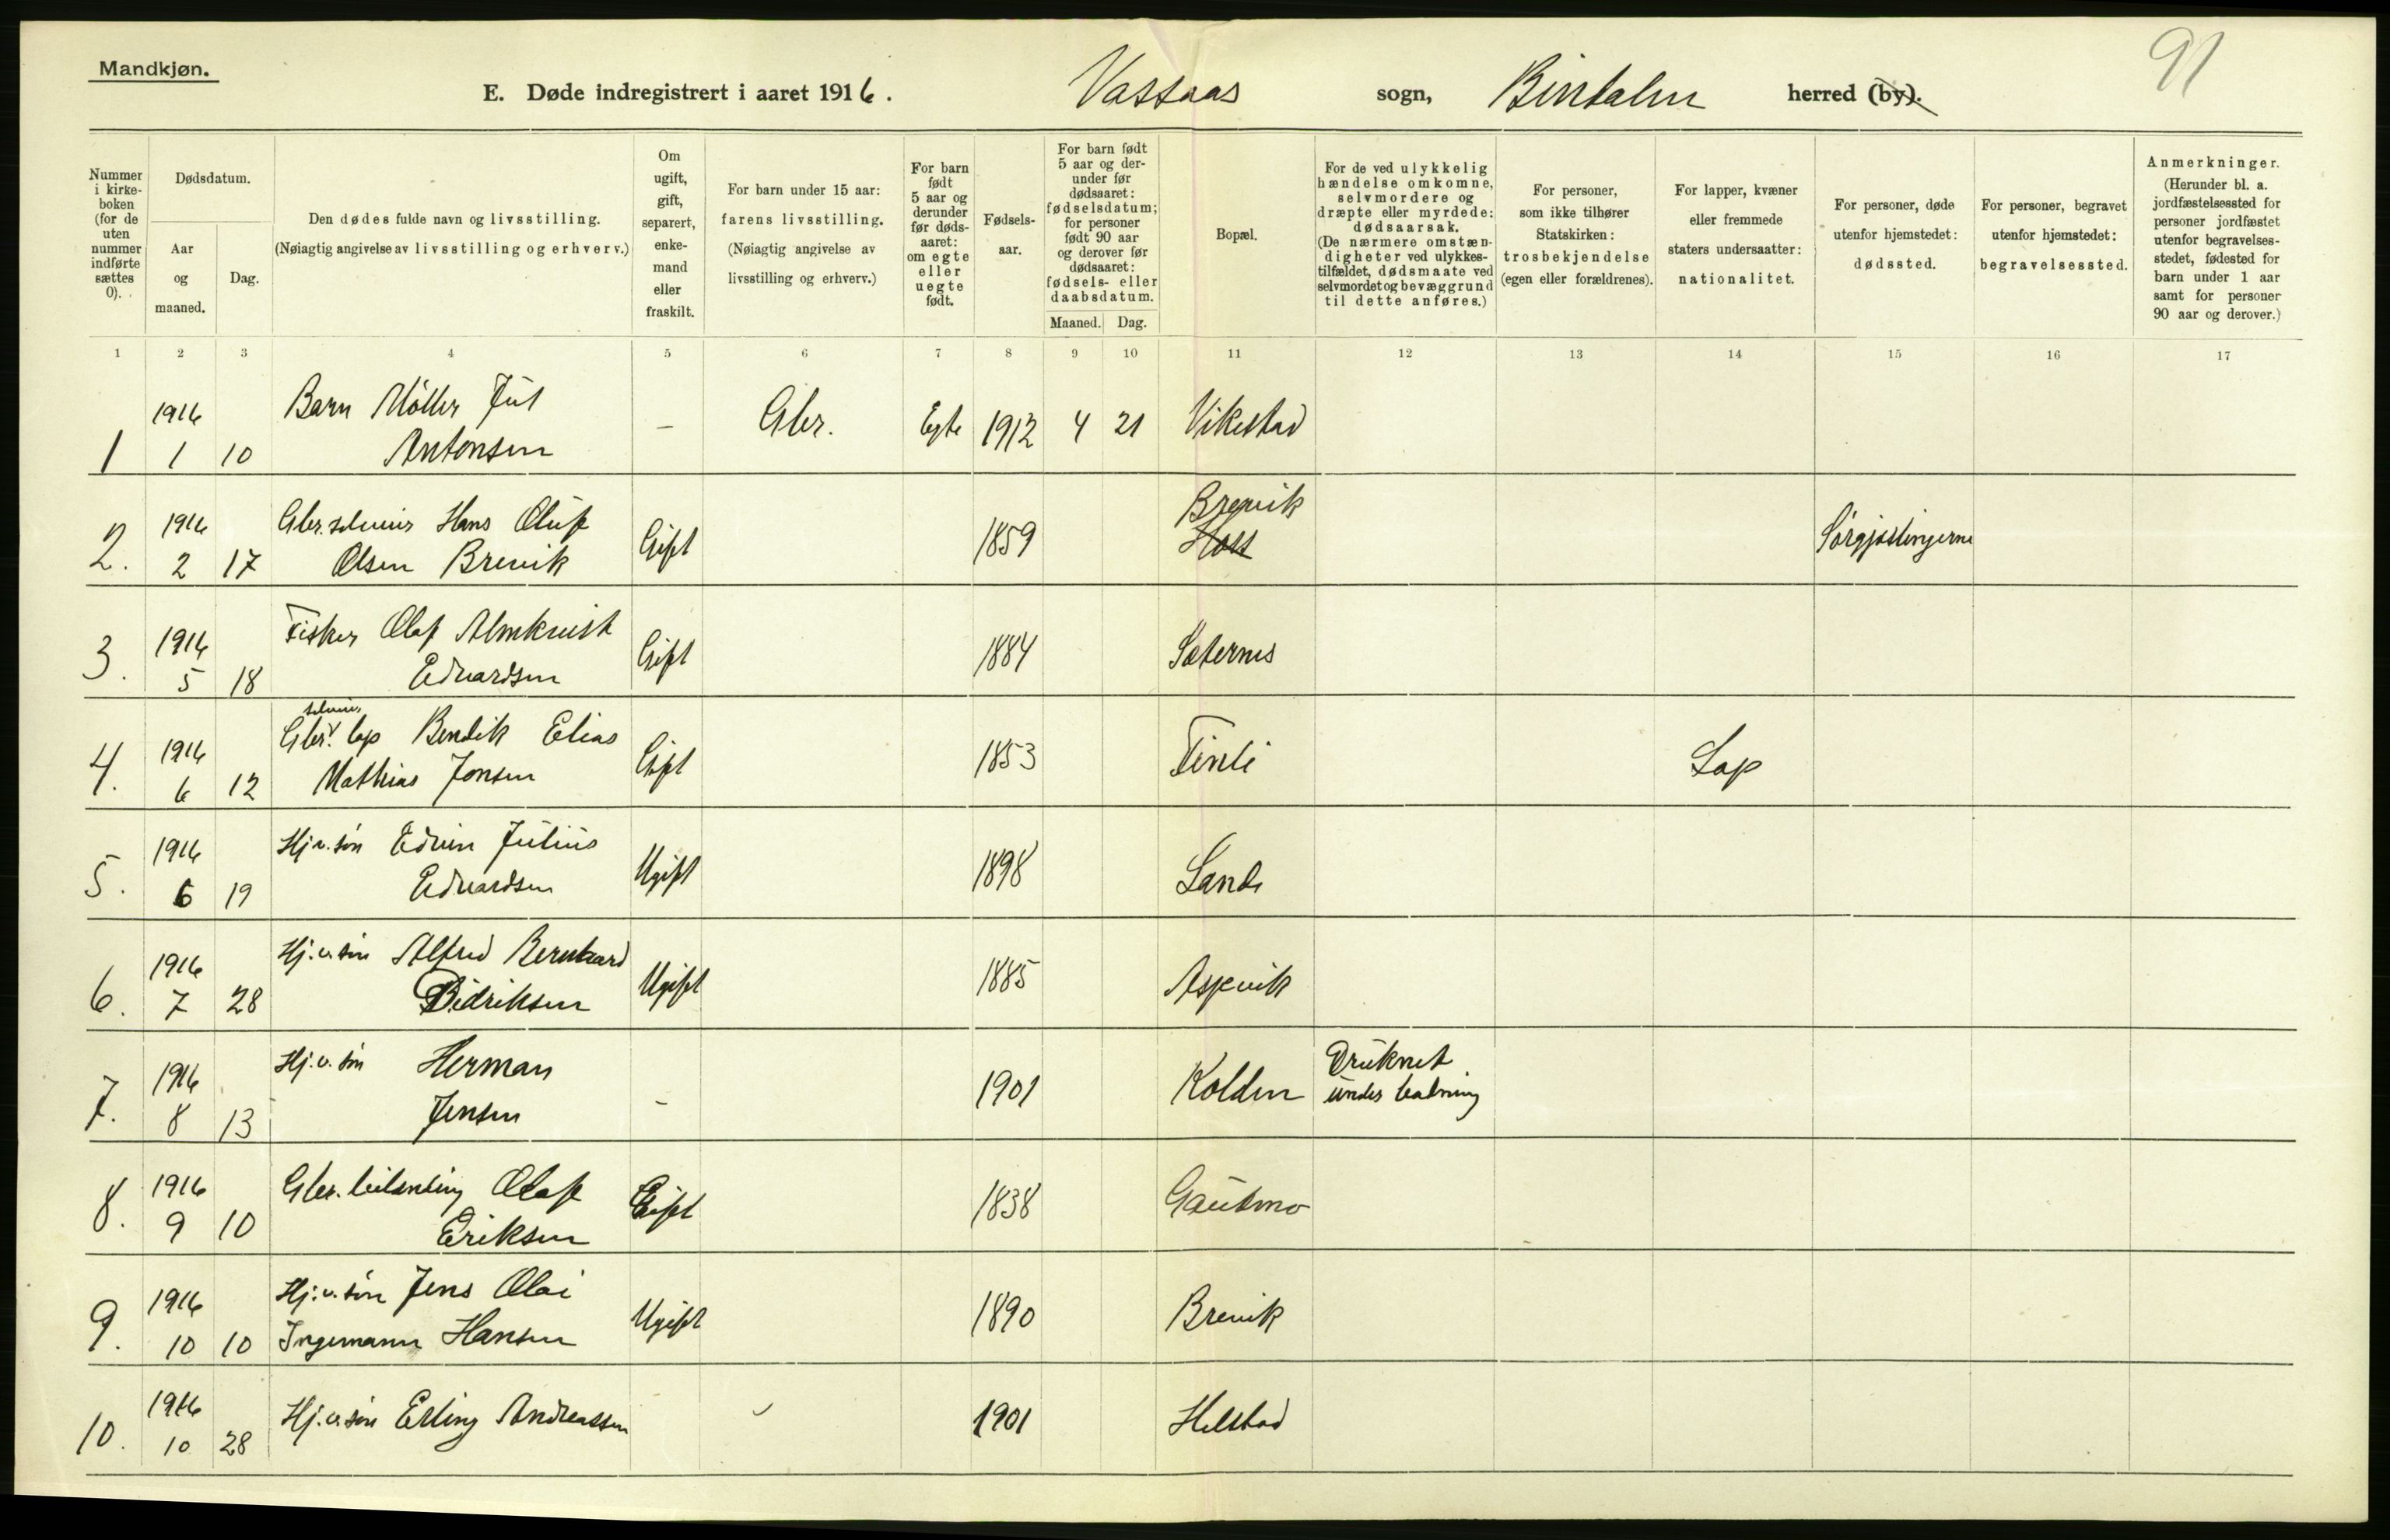 Mandkjøn.
91
E. Døde indregistrert i aaret 1916. Vassaas sogn, Bindalen herred (by).
Nummer i kirkeboken (for de uten nummer indførte sættes 0).
Dødsdatum.
Aar og maaned.
Dag.
Den dødes fulde navn og livsstilling.
(Nøiagtig angivelse av livsstilling og erhverv.)
Om ugift, gift, separert, enkemand eller fraskilt.
For barn under 15 aar: farens livsstilling. (Nøiagtig angivelse av livsstilling og erhverv.)
For barn født 5 aar og derunder før dødsaaret: om egte eller uegte født.
Fødselsaar.
For barn født 5 aar og derunder før dødsaaret: fødselsdatum; for personer født 90 aar og derover før dødsaaret: fødsels- eller daabsdatum.
Maaned. Dag.
Bopæl.
For de ved ulykkelig hændelse omkomne, selvmordere og dræpte eller myrdede: dødsaarsak. (De nærmere omstændigheter ved ulykkestilfældet, dødsmaate ved selvmordet og bevæggrund til dette anføres.)
For personer, som ikke tilhører Statskirken: trosbekjendelse (egen eller forældrenes).
For lapper, kvæner eller fremmede staters undersaatter: nationalitet.
For personer, døde utenfor hjemstedet: dødssted.
For personer, begravet utenfor hjemstedet: begravelsessted.
Anmerkninger. (Herunder bl. a. jordfæstelsessted for personer jordfæstet utenfor begravelsesstedet, fødested for barn under 1 aar samt for personer 90 aar og derover.)
1 2 3 4 5 6 7 8 9 10 11 12 13 14 15 16 17
1 1916 1 10 Barn Møller Jul Antonsen - Gbr. Egte 1912 4 21 Vikestad
2. 1916 2 17 Gbr. selveier Hans Oluf Olsen Brevik Gift 1859 Brevik Sørgjæslingerne
3. 1916 5 18 Fisker Olaf Almkvist Edvardsen Gift 1884 Sæternes
4. 1916 6 12 Gbr. selveier lap Bendik Elias Mathias Jonsen Gift 1853 Tinli Lap
5. 1916 6 19 Hj.v. søn Edvin Julius Edvardsen Ugift 1898 Sande
6. 1916 7 28 Hj.v. søn Alfred Bernhard Didriksen Ugift 1885 Aspevik
7. 1916 8 13 Hj.v. søn Herman Jensen - 1901 Kolden Druknet under badning
8. 1916 9 10 Gbr. leilending Olaf Eriksen Gift 1838 Gautmo
9. 1916 10 10 Hj.v. søn Jens Olai Ingemann Hansen Ugift 1890 Brevik
10. 1916 10 28 Hj.v. søn Erling Andreassen - 1901 Helstad